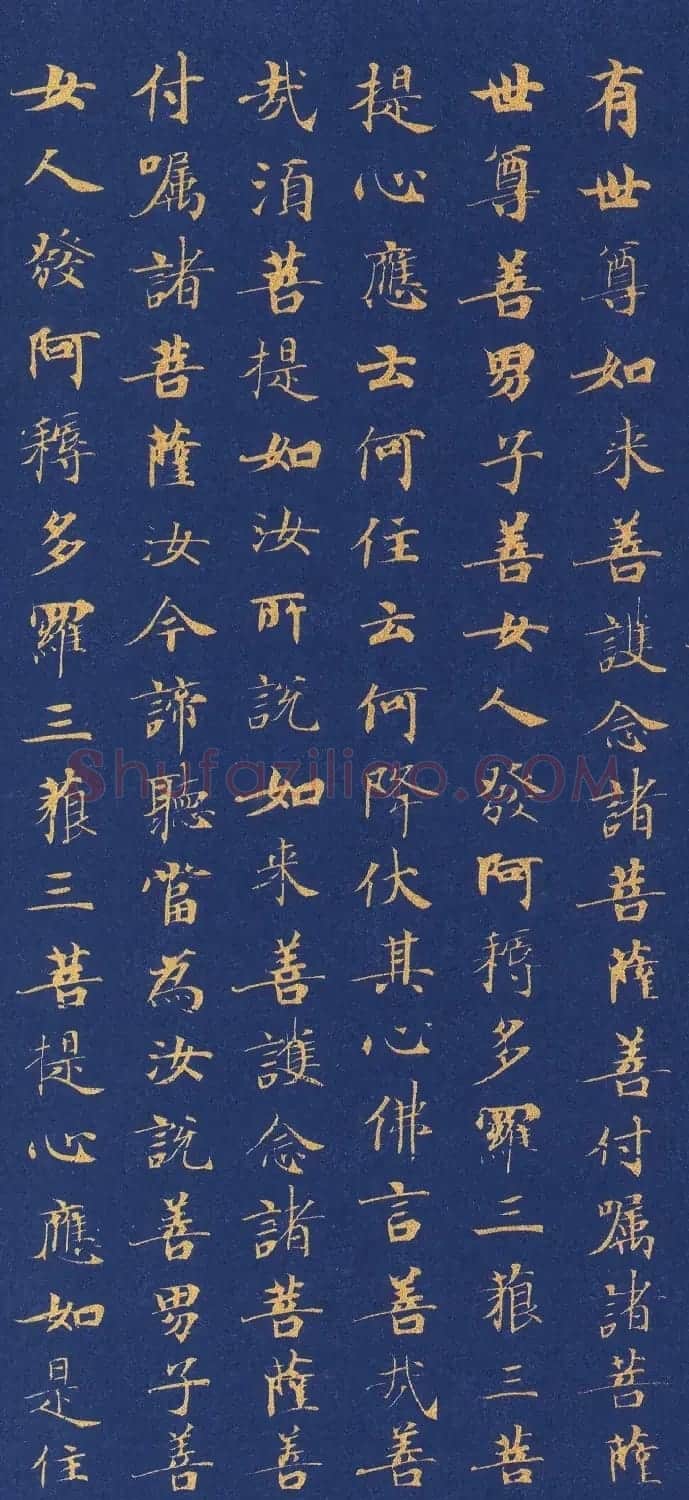 有世尊如来善護念諸菩薩善付嘱諸菩薩
世尊善男子善女人發阿耨多羅三藐三菩
提心應云何住云何降伏其心佛言善哉善
哉湏菩提如汝所說如来善護念諸菩薩善
付嘱諸菩薩汝今諦聽當為汝說善男子善
女人發阿耨多羅三藐三菩提心應如是住
Shufaziliao.COM